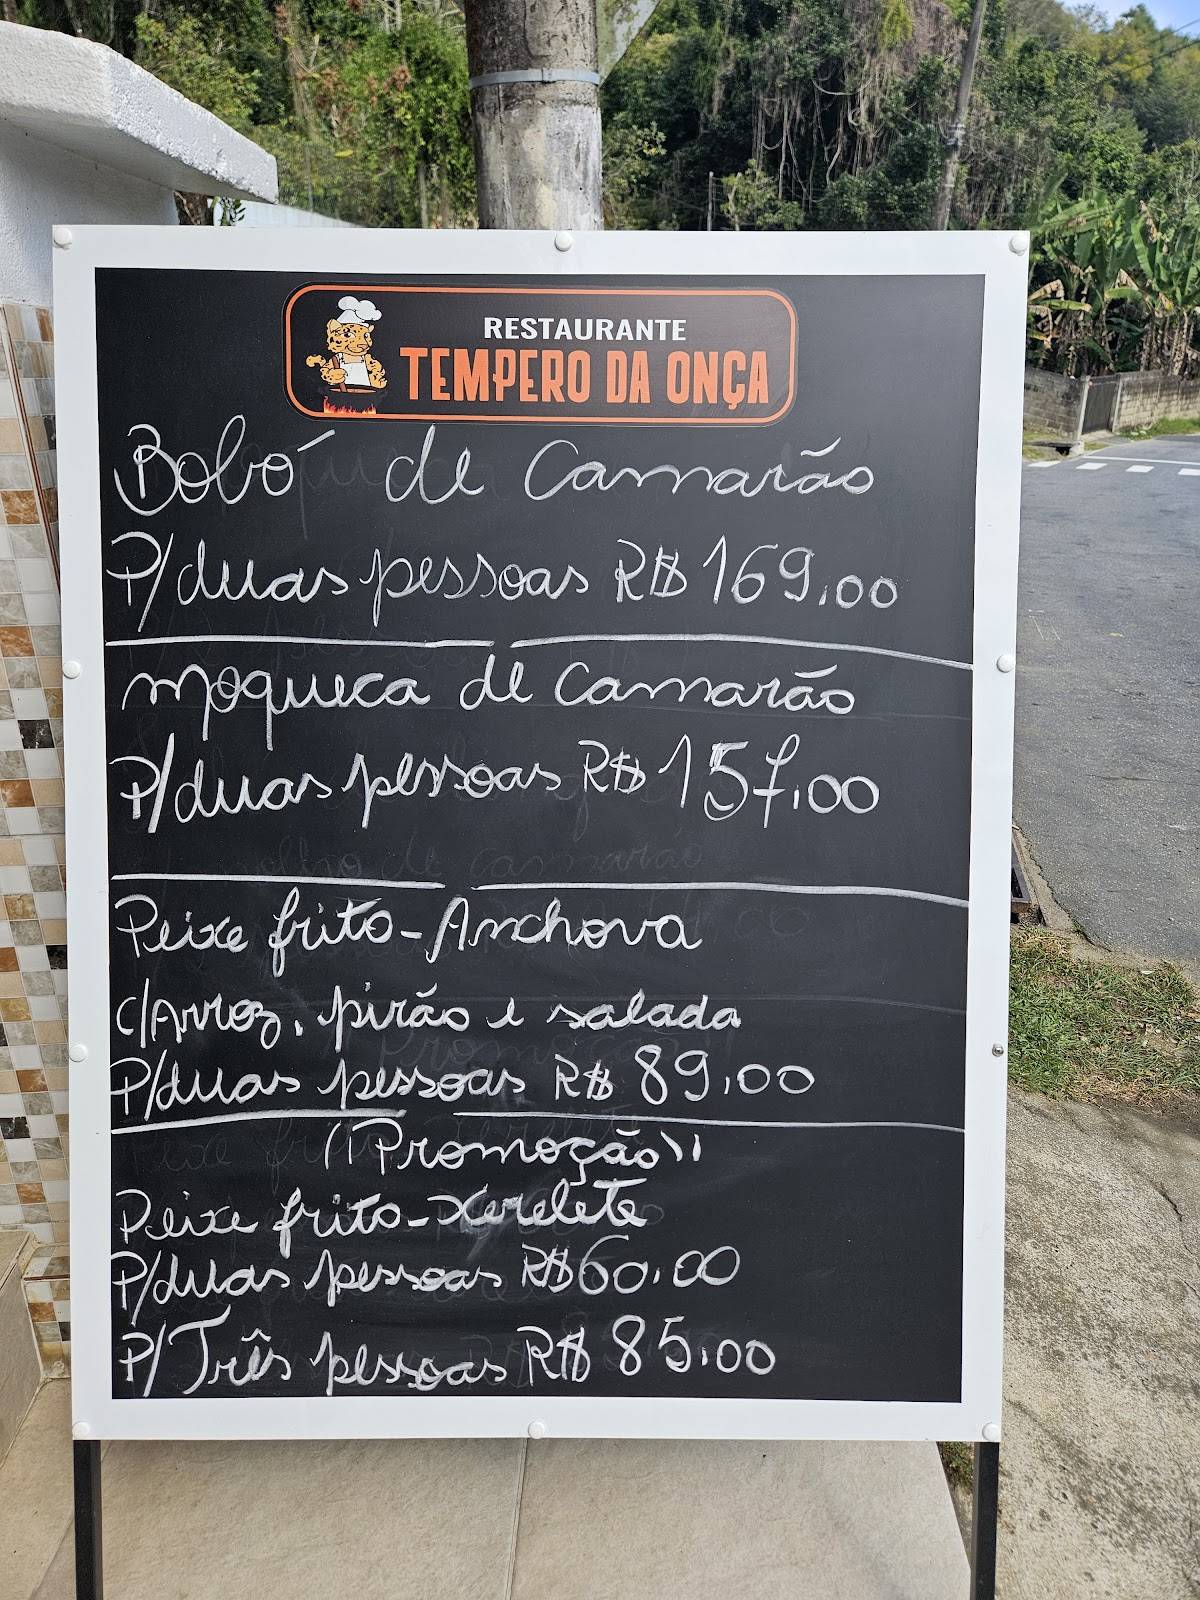 RESTAURANTE
TEMPERO DA ONÇA
Bobó de Camarão
P/duas pessoas R$ 169,00
moqueca de Camarão
P/duas pessoas R$ 157,00
Peixe frito - Anchova
c/Arroz, pirão e salada
P/duas pessoas R$ 89,00
"Promoção"
Peixe frito - Xerelete
P/duas pessoas R$ 60,00
P/Três pessoas R$ 85,00